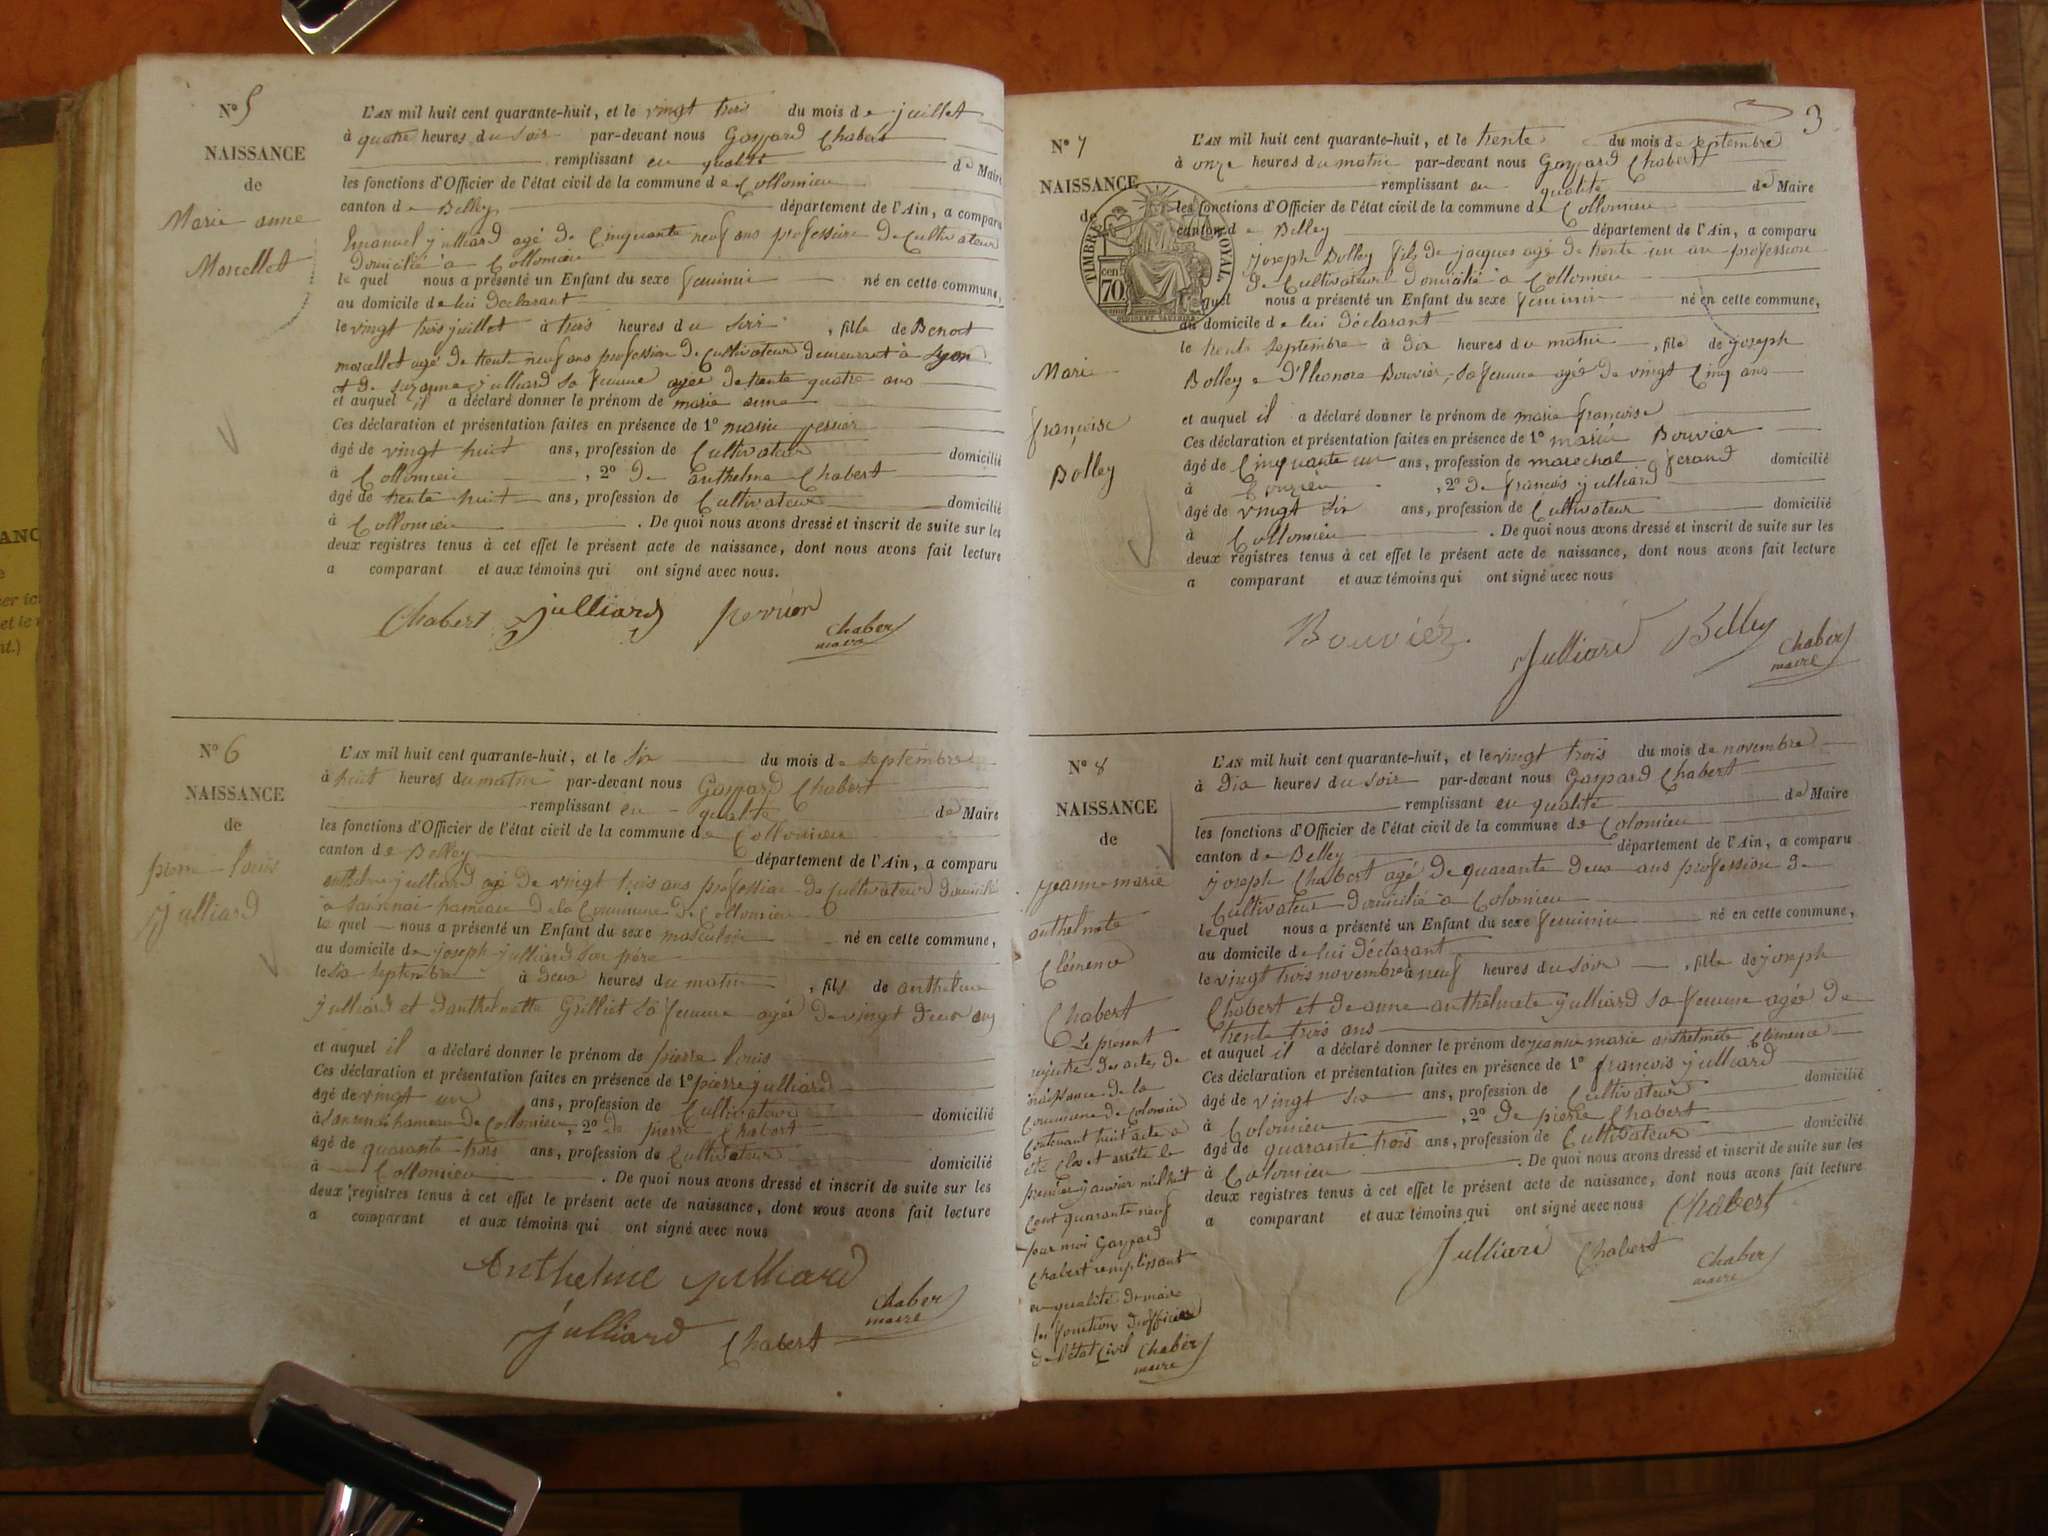 N° 5
NAISSANCE
de
Marie anne
Morellet
L'AN mil huit cent quarante-huit, et le vingt trois du mois de juillet
à quatre heures du soir par-devant nous Gaspard Chabert
remplissant en qualité de Maire
les fonctions d'Officier de l'état civil de la commune de Collomieu
canton de Belley département de l'Ain, a comparu
Emanuel julliard agé de Cinquante neuf ans profession de Cultivateur
domicilié a Collomieu
le quel nous a présenté un Enfant du sexe feminin né en cette commune,
au domicile de lui déclarant
le vingt trois juillet à trois heures du soir, fille de Benoit
morellet agé de trent neuf ans profession de Cultivateur demeurant à Lyon
et de suzanne julliard sa femme agée de trente quatre ans
et auquel il a déclaré donner le prénom de marie anne
Ces déclaration et présentation faites en présence de 1° perrier
âgé de vingt huit ans, profession de Cultivateur domicilié
à Collomieu, 2° de anthelme Chabert
âgé de trente huit ans, profession de Cultivateur domicilié
à Collomieu. De quoi nous avons dressé et inscrit de suite sur les
deux registres tenus à cet effet le présent acte de naissance, dont nous avons fait lecture
a comparant et aux témoins qui ont signé avec nous.
Chabert julliard perrier
Chaber
maire
N° 6
NAISSANCE
de
pierre louis
Julliard
L'AN mil huit cent quarante-huit, et le six du mois de septembre
à huit heures du matin par-devant nous Gaspard Chabert
remplissant en qualité de Maire
les fonctions d'Officier de l'état civil de la commune de Collomieu
canton de Belley département de l'Ain, a comparu
anthelme julliard agé de vingt trois ans profession de Cultivateur domicilié
a hameau de la Commune de Collomieu
le quel nous a présenté un Enfant du sexe masculin né en cette commune,
au domicile de joseph julliard son père
le six septembre à deux heures du matin, fils de anthelme
julliard et d'anthelmette Grilliet sa femme agée de vingt deux ans
et auquel il a déclaré donner le prénom de pierre louis
Ces déclaration et présentation faites en présence de 1° pierre julliard
âgé de vingt un ans, profession de Cultivateur domicilié
à hameau de Collomieu, 2° de pierre Chabert
âgé de quarante trois ans, profession de Cultivateur domicilié
à Collomieu. De quoi nous avons dressé et inscrit de suite sur les
deux registres tenus à cet effet le présent acte de naissance, dont nous avons fait lecture
a comparant et aux témoins qui ont signé avec nous
Anthelme julliard
Julliard Chabert
Chaber
maire
3
N° 7
NAISSANCE
de
TIMBRE ROYAL
cen 70
Marie
françoise
Bolley
L'AN mil huit cent quarante-huit, et le trente du mois de septembre
à onze heures du matin par-devant nous Gaspard Chabert
remplissant en qualité de Maire
les fonctions d'Officier de l'état civil de la commune de Collomieu
canton de Belley département de l'Ain, a comparu
joseph Bolley fils de jacques agé de trente un an profession
de Cultivateur domicilié a Collomieu
lequel nous a présenté un Enfant du sexe feminin né en cette commune,
au domicile de lui déclarant
le trente septembre à dix heures du matin, file de joseph
Bolley e d'Eleonore Bouvier, sa femme agée de vingt Cinq ans
et auquel il a déclaré donner le prénom de marie françoise
Ces déclaration et présentation faites en présence de 1° Bouvier
âgé de Cinquante un ans, profession de marechal ferand domicilié
à, 2° de francois julliard
âgé de vingt six ans, profession de Cultivateur domicilié
à Collomieu. De quoi nous avons dressé et inscrit de suite sur les
deux registres tenus à cet effet le présent acte de naissance, dont nous avons fait lecture
a comparant et aux témoins qui ont signé avec nous
Bouvier Julliard Bolley Chaber
maire
N° 8
NAISSANCE
de
jeanne marie
anthelmete
Clémence
Chabert
Le present
registre des actes de
naissance de la
Commune de Colomieu
Contenant huit acte a
été Clos et arrêté le
premier janvier mil huit
Cent quarante neuf
par moi Gaspard
Chabert remplissant
en qualité de maire
les fonctions d'officier
de l'état Civil Chaber
maire
L'AN mil huit cent quarante-huit, et le vingt trois du mois de novembre
à Dix heures du soir par-devant nous Gaspard Chabert
remplissant en qualité de Maire
les fonctions d'Officier de l'état civil de la commune de Colomieu
canton de Belley département de l'Ain, a comparu
joseph Chabert agé de quarante deux ans profession de
Cultivateur domicilié a Colomieu
le quel nous a présenté un Enfant du sexe feminin né en cette commune,
au domicile de lui déclarant
le vingt trois novembre à neuf heures du soir, fille de joseph
Chabert et de anne anthelmete julliard sa femme agée de
trente trois ans
et auquel il a déclaré donner le prénom de jeanne marie anthelmete Clemence
Ces déclaration et présentation faites en présence de 1° françois julliard
âgé de vingt six ans, profession de Cultivateur domicilié
à Colomieu, 2° de pierre Chabert
âgé de quarante trois ans, profession de Cultivateur domicilié
à Colomieu. De quoi nous avons dressé et inscrit de suite sur les
deux registres tenus à cet effet le présent acte de naissance, dont nous avons fait lecture
a comparant et aux témoins qui ont signé avec nous Chabert
Julliard Chabert Chaber
maire